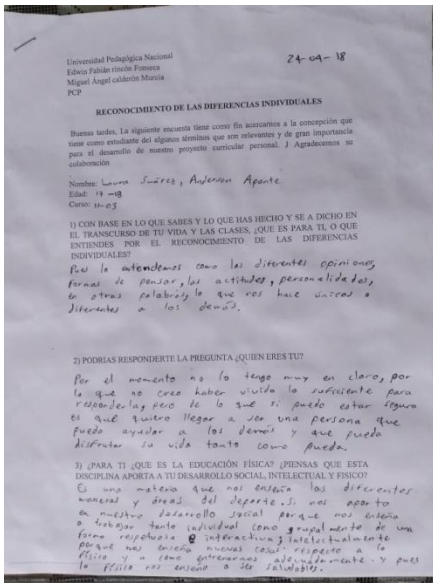 24-04-18
Universidad Pedagógica Nacional
Edwin Fabián rincón Fonseca
Miguel Ángel calderón Murcia
PCP
RECONOCIMIENTO DE LAS DIFERENCIAS INDIVIDUALES
Buenas tardes, La siguiente encuesta tiene como fin acercarnos a la concepción que
tiene como estudiante del algunos términos que son relevantes y de gran importancia
para el desarrollo de nuestro proyecto curricular personal. J Agradecemos su
colaboración
Nombre: Laura Suárez, Anderson Aponte
Edad: 17-18
Curso: 11-03
1) CON BASE EN LO QUE SABES Y LO QUE HAS HECHO Y SE A DICHO EN
EL TRANSCURSO DE TU VIDA Y LAS CLASES, ¿QUE ES PARA TI, O QUE
ENTIENDES POR EL RECONOCIMIENTO DE LAS DIFERENCIAS
INDIVIDUALES?
Pues lo entendemos como las diferentes opiniones,
formas de pensar, las actitudes, personalidades,
en otras palabras, lo que nos hace únicos o
diferentes a los demás.
2) PODRIAS RESPONDERTE LA PREGUNTA ¿QUIEN ERES TU?
Por el momento no lo tengo muy en claro, por
lo que no creo haber vivido lo suficiente para
responderla, pero de lo que si puedo estar seguro
es que quiero llegar a ser una persona que
pueda ayudar a los demás y que pueda
disfrutar su vida tanto como pueda.
3) ¿PARA TI ¿QUE ES LA EDUCACIÓN FÍSICA? ¿PIENSAS QUE ESTA
DISCIPLINA APORTA A TU DESARROLLO SOCIAL, INTELECTUAL Y FISICO?
Es una materia que nos enseña las diferentes
maneras y áreas del deporte. Si nos aporta
en nuestro desarrollo social porque nos enseña
a trabajar tanto individual como grupalmente de una
forma respetuosa e interactiva, intelectualmente
porque nos enseña nuevas cosas respecto a lo
físico y a como entrenarnos adecuadamente y pues
lo físico nos enseña a ser saludables.